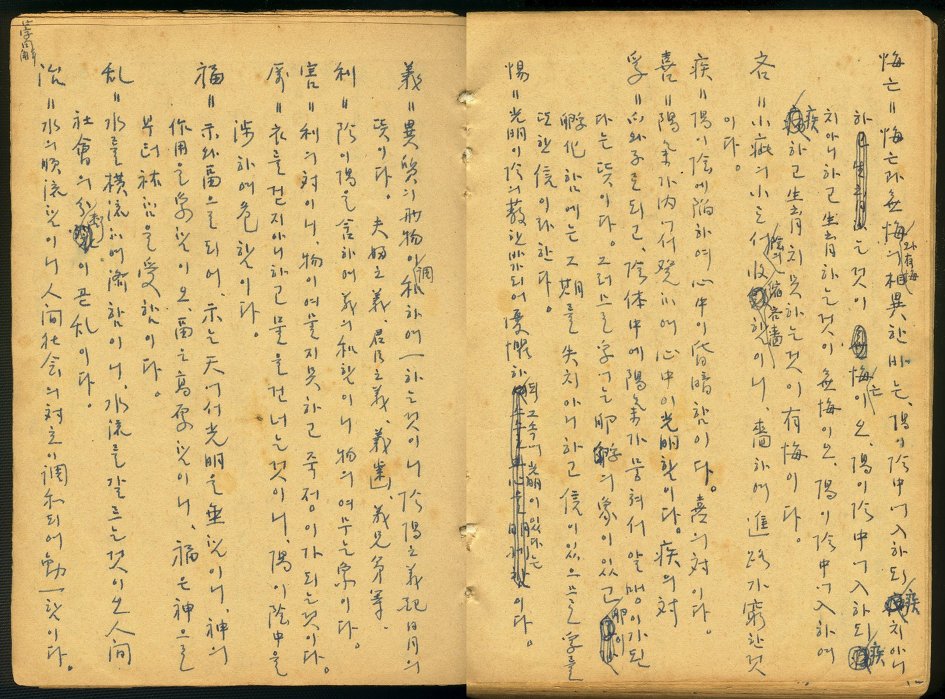 悔亡॥悔亡와 無悔와 有悔의 相異한바는, 陽이 陰中에 入하되 疾치아니
하는것이 悔亡이오, 陽이 陰中에 入하되 疾
치아니하고 生育하는것이 無悔이오, 陽이 陰中에 入하여
疾하고 生育치못하는것이 有悔이다.
吝॥小疵의 小는 收縮이니, 嗇하여 進路가 窮한것
이다.
疾॥陽이 陰에 陷하여 心中이 昏暗함이다. 喜의 對이다.
喜॥陽氣가 內에서 發하여 心中이 光明함이다. 疾의 對
孚॥爪와 子로 되고, 陰体中에 陽氣가 뭉쳐서 알맹이가된
다는 뜻이다. 그러므로 孚는 卵孵의 象이 있고
孵化함에는 그 期를 失치아니하고 信이 있으므로 孚를
또한 信이라 한다.
惕॥光明이 陰의 蔽한바 되어 憂惧하되 그속에 光明이 있다는 이다.
義॥異質의 兩物이 調和하여 一하는것이니 陰陽之義配日月의
뜻이다. 夫婦之義, 君臣之義, 義齒, 義兄弟等.
利॥陰이 陽을 含하여 義의 和함이니 物의 여무는 象이다.
害॥利의 對이니, 物이 여물지못하고 죽정이가 되는것이다.
厲॥衣를 걷지아니하고 물을 건너는것이니, 陽이 陰中을
涉하여 危함이다.
福॥示와 畐으로 되어, 示는 天에서 光明을 垂함이니, 神의
作用을 象함이오, 畐은 高厚함이니, 福은 神으로
부터 祐함을 受함이다.
乱॥水를 橫流하여 濟함이니, 水流를 갈르는것이오 人間
社會의 分이 곧 乱이다.
治॥水의 順流함이니 人間社会의 対立이 調和되어 動一함이다.